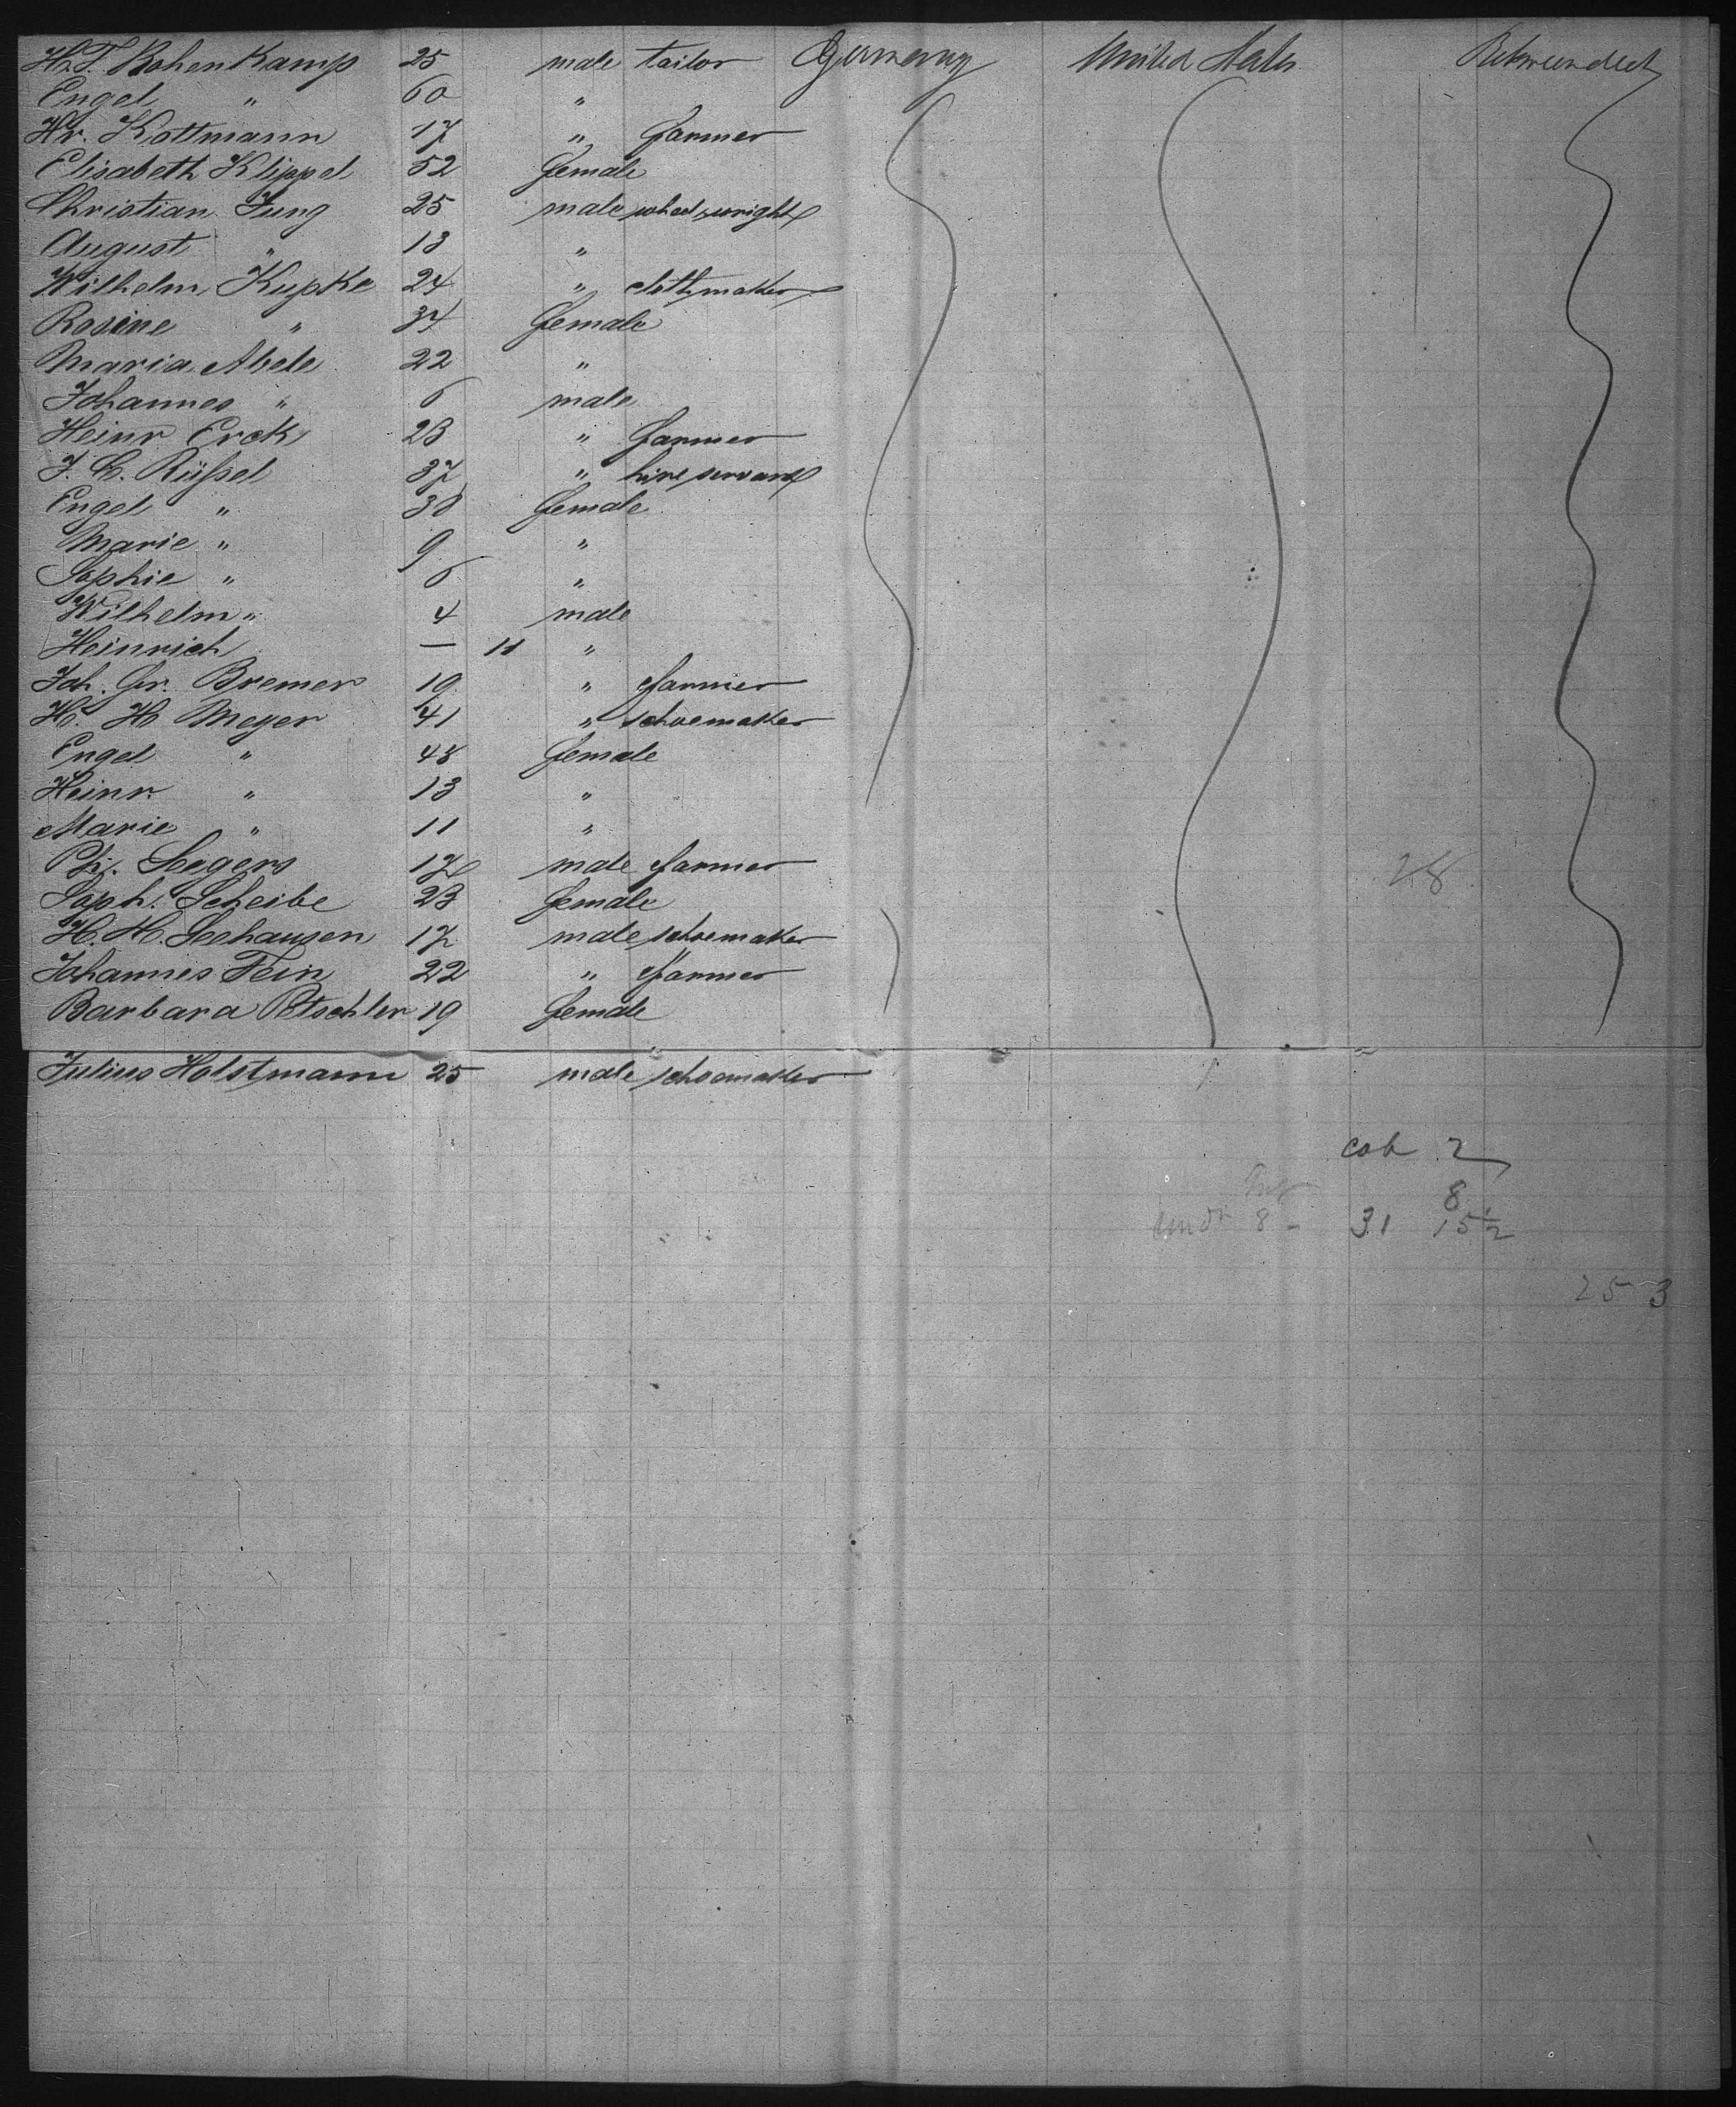 H. F. Bohenkamp 25 male tailor Germany United States Between deck
Engel " 60 "
Hr. Kottmann 17 " farmer
Elisabeth Klippel 52 female
Christian Jung 25 male wheelwright
August " 13 "
Wilhelm Kupke 24 " clothmaker
Rosine " 34 female
Maria Abele 22 "
Johannes " 6 male
Heinr Erck 23 " farmer
J. C. Rüßel 37 " hire servant
Engel " 38 female
Marie " 9 "
Sophie " 6 "
Wilhelm " 4 male
Heinrich — 11 "
Joh. Gr. Bremer 19 " farmer
H. H Meyer 41 " schoemaker
Engel " 48 female
Heinr " 13 "
Marie " 11 "
Ph. Segers 17 male farmer
28
Soph. Scheibe 23 female
H. H. Seehausen 17 male schoemaker
Johannes Fein 22 " farmer
Barbara Petschler 19 female
Julius Holstmann 25 male schoemaker
cab 2
8
8 - 31 15½
25 3